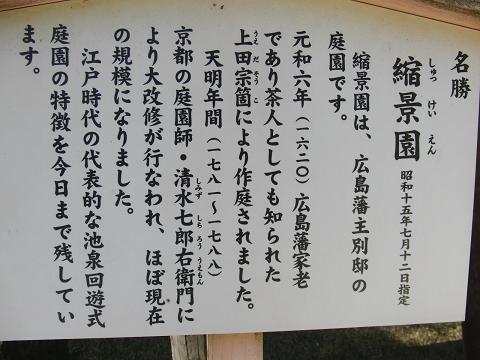 名勝
縮景園 昭和十五年七月十二日指定
しゅっ けい えん
縮景園は、広島藩主別邸の
庭園です。
元和六年（一六二〇）広島藩家老
であり茶人としても知られた
上田宗箇により作庭されました。
うえ だ そう こ
天明年間（一七八一〜一七八八）
京都の庭園師・清水七郎右衛門に
しみず しち ろう うえもん
より大改修が行なわれ、ほぼ現在
の規模になりました。
江戸時代の代表的な池泉回遊式
庭園の特徴を今日まで残してい
ます。